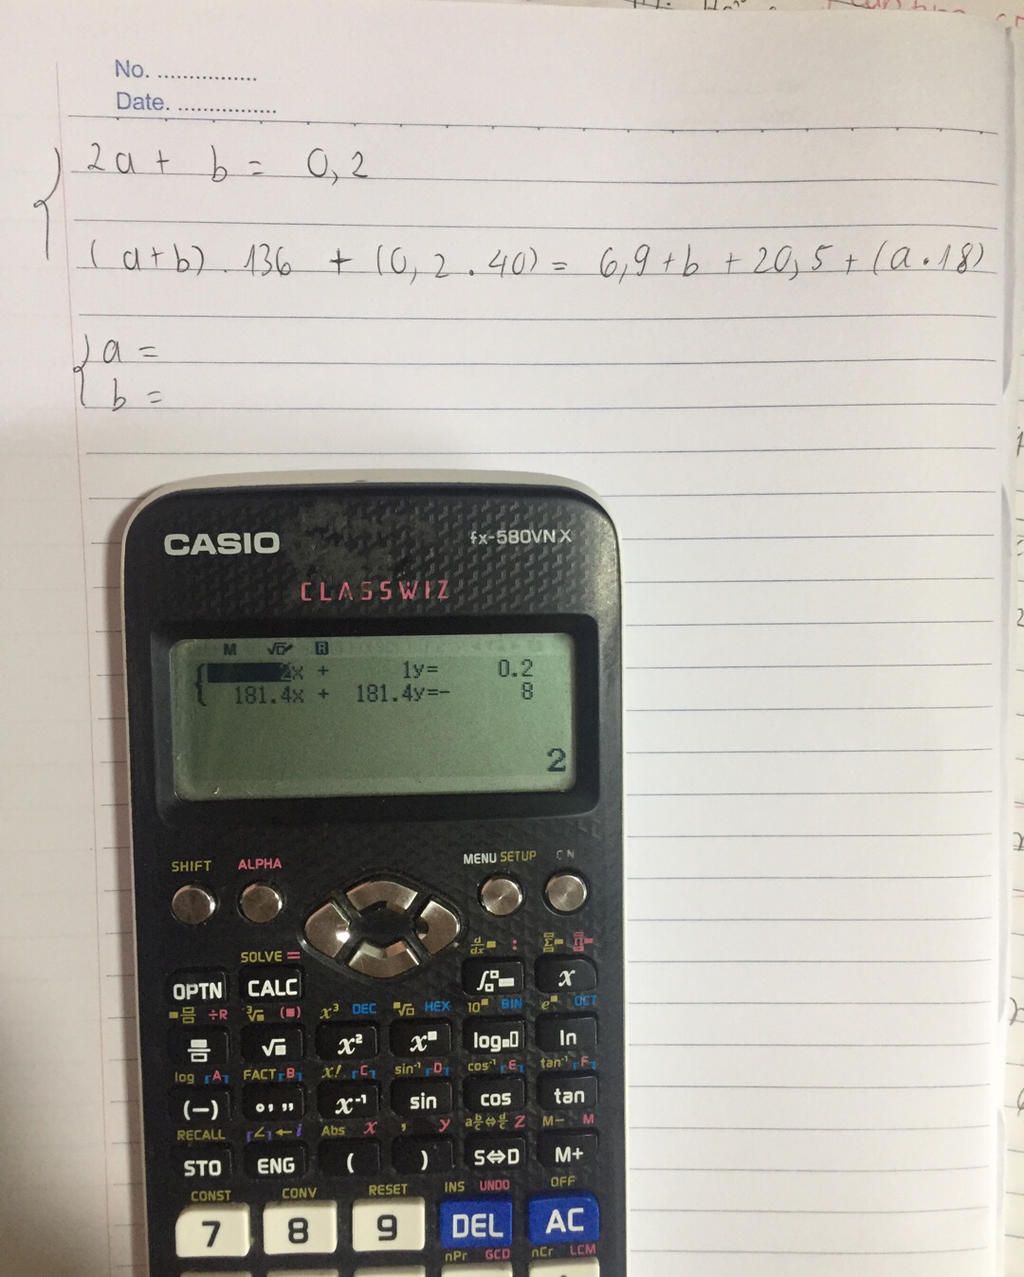 No. ................
Date. ................
2a + b = 0,2
(a+b) . 136 + (0,2 . 40) = 6,9 + b + 20,5 + (a . 18)
a =
b =
CASIO fx-580VN X
CLASSWIZ
M √ R
2x + 1y= 0.2
181.4x + 181.4y=- 8
2
SHIFT ALPHA MENU SETUP
SOLVE =
OPTN CALC x
÷R x³ DEC HEX BIN OCT
x² log ln
log A FACT B x! C sin⁻¹ D cos⁻¹ E tan⁻¹ F
(−) x⁻¹ sin cos tan
RECALL ∠ ← i Abs x , y Z M− M
STO ENG ( ) S⇔D M+
CONST CONV RESET INS UNDO OFF
7 8 9 DEL AC
nPr GCD nCr LCM